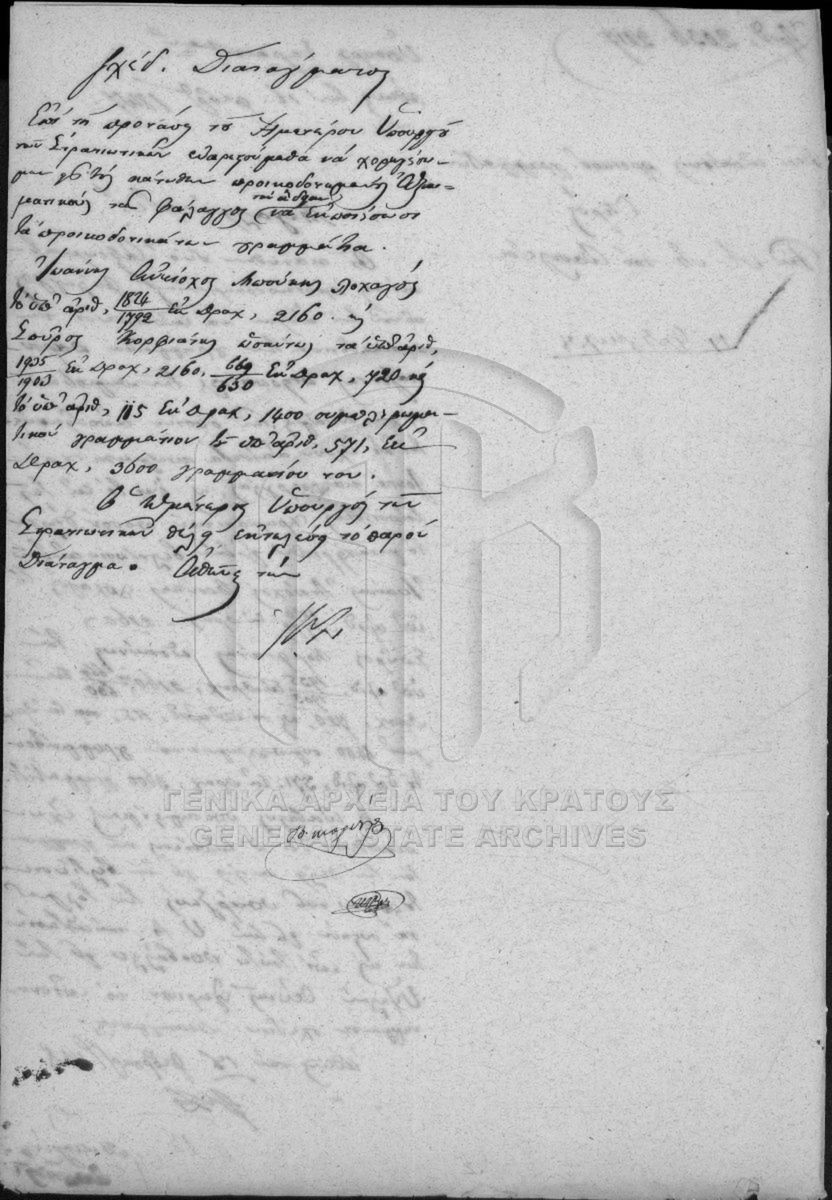 Σχέδ. Διατάγματος
Επί τη προτάσει τού Ημετέρου Υπουργού
των Στρατιωτικών ευαρεστούμεθα νά χορηγήσω-
μεν εις τούς κάτωθεν προικοδοτημένους Αξιω-
ματικούς της Φάλαγγος την άδειαν να εκποιήσωσι
τα προικοδοτικά των γραμμάτια.
Ιωάννης Μπούκης λοχαγός
το υπ' αριθ, 1824/1792 εκ δραχ, 2160. καί
Σπύρος Κορβιάνης ωσαύτως τα υπ' αριθ,
1935/1903 εκ δραχ, 2160, 669/650 εκ δραχ, 720 καί
το υπ' αριθ, 115 εκ δραχ, 1400 συμπληρωμα-
τικού γραμμάτιον του υπ' αριθ, 571, εκ
δραχ, 3600 γραμματίου του.
Ο Ημέτερος Υπουργός των
Στρατιωτικών θέλει εκτελέσει το παρόν
Διάταγμα. Αθήναι την
ΓΕΝΙΚΑ ΑΡΧΕΙΑ ΤΟΥ ΚΡΑΤΟΥΣ
GENERAL STATE ARCHIVES